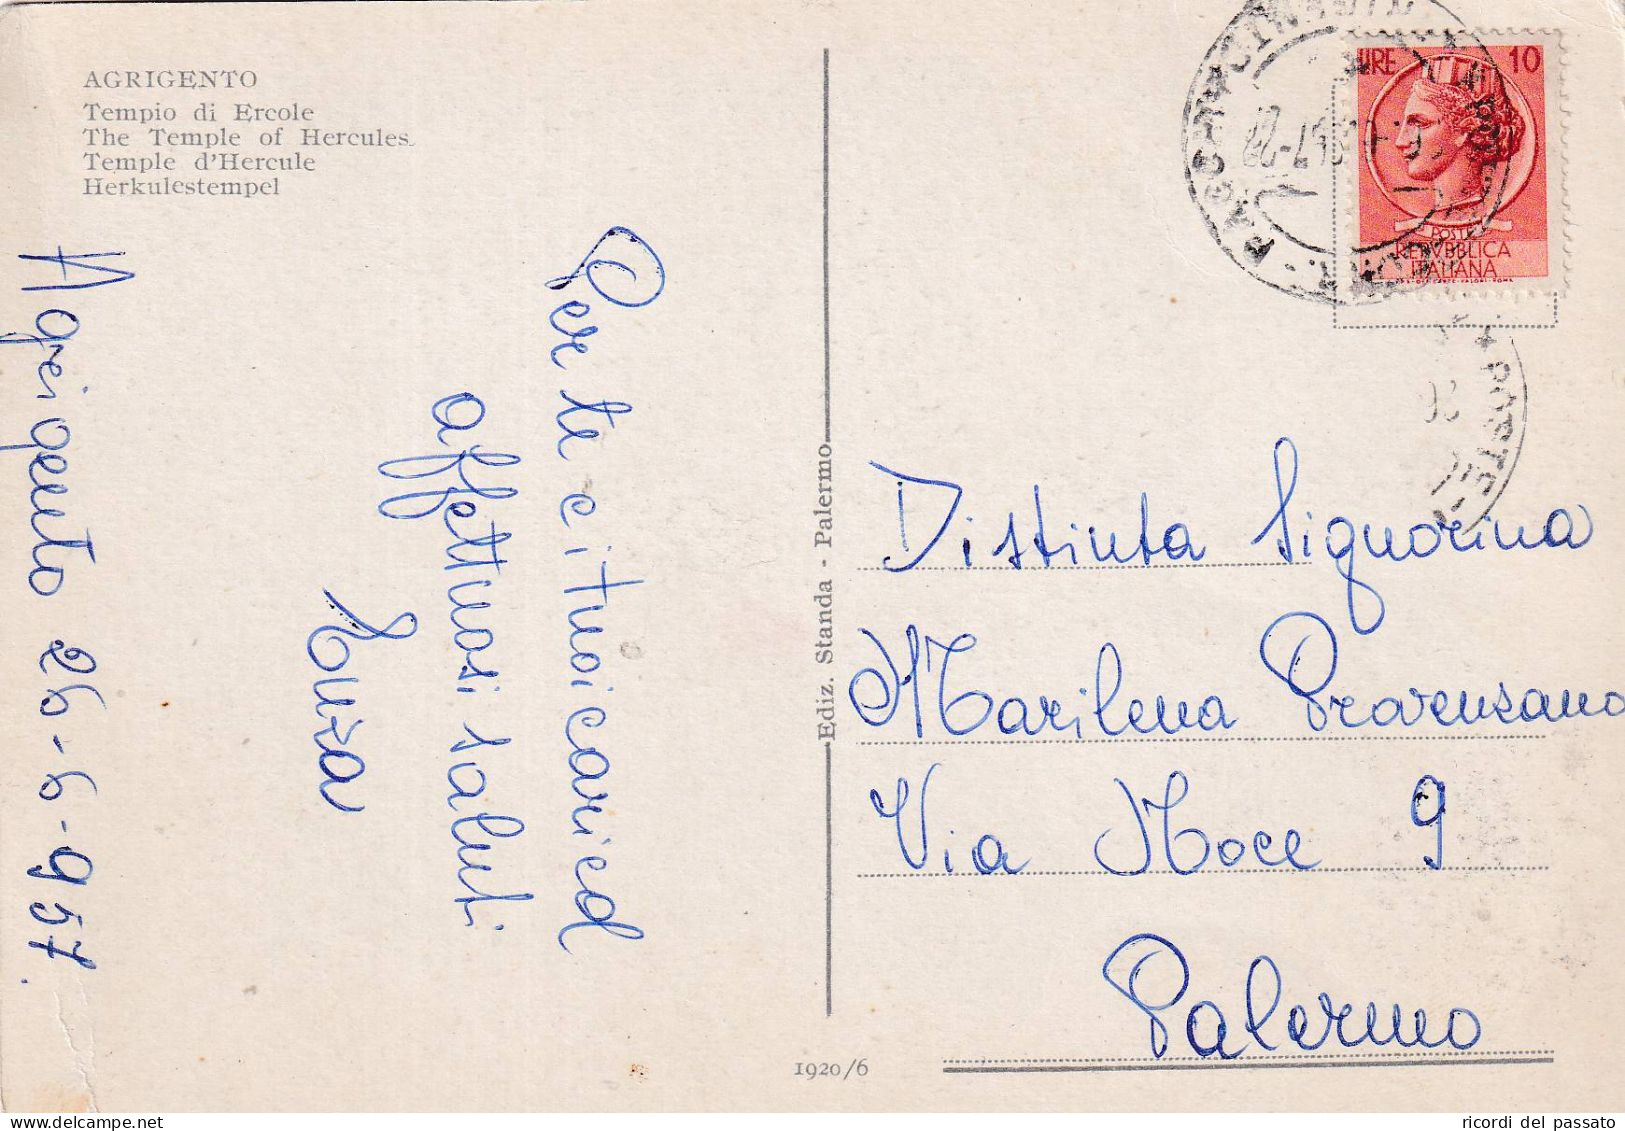 AGRIGENTO
Tempio di Ercole
The Temple of Hercules
Temple d'Hercule
Herkulestempel
Agrigento 26-6-957.
Per te e i tuoi cari ed
affettuosi saluti
Ediz. Standa - Palermo
1920/6
LIRE 10
POSTE
REPVBBLICA
ITALIANA
POSTE
Distinta Signorina
Marilena Provenzano
Via Noce 9
Palermo
ricordi del passato